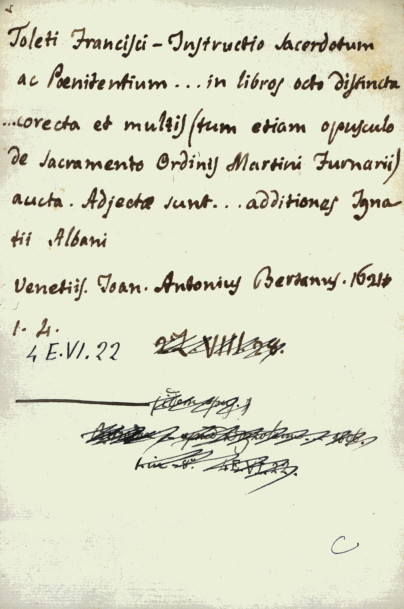 Toleti Francisci - Instructio Sacerdotum
ac Pœnitentium ... in libros octo distincta
...corecta et multis (tum etiam opusculo
de Sacramento Ordinis Martini Furnarii)
aucta. Adjectæ sunt... additiones Igna
tii Albani
Venetiis. Ioan. Antonius Bertanus. 1621
1. 4.
4 E.VI.22 27.VIII.28.
C